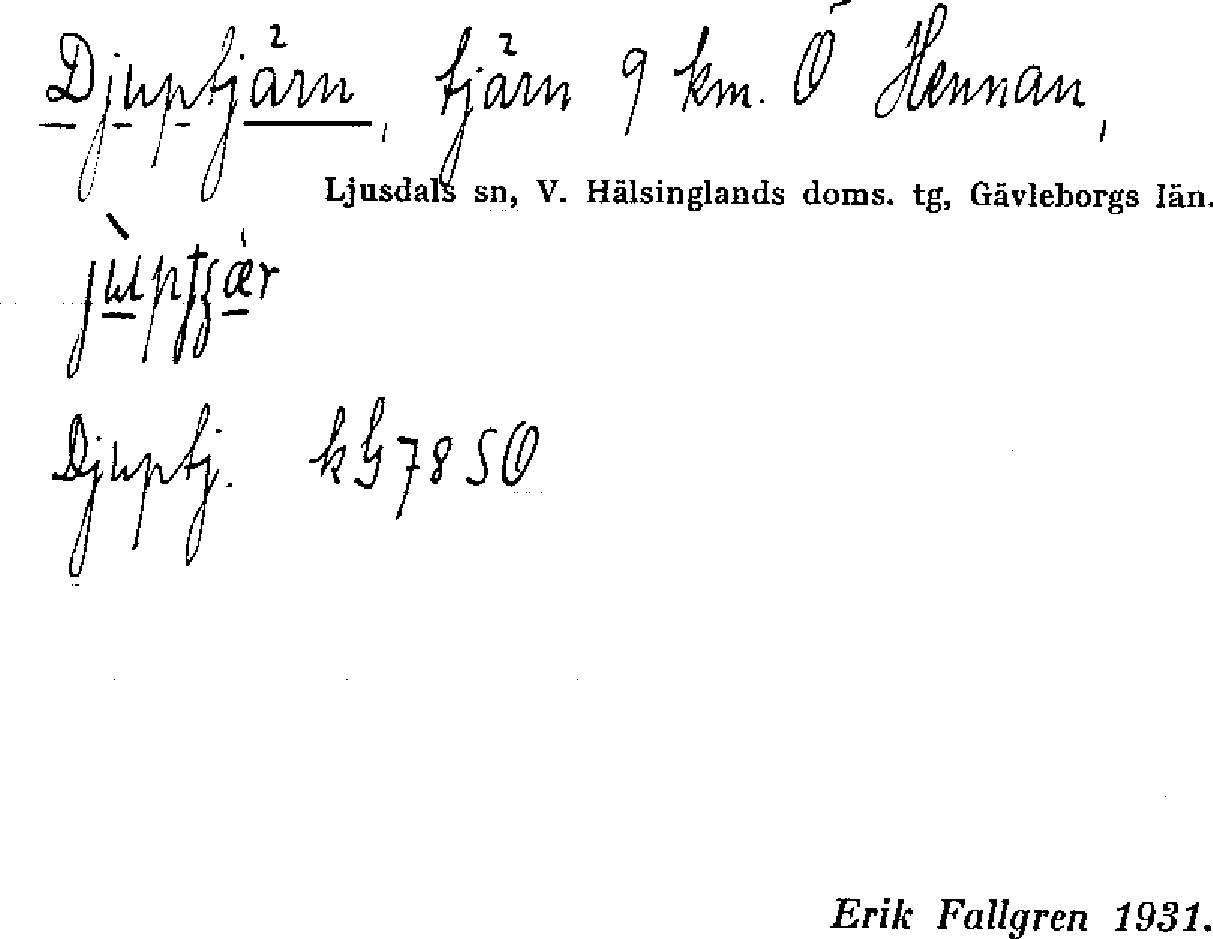 Djuptjärn, tjärn 9 km. Ö Hennan,
Ljusdals sn, V. Hälsinglands doms. tg, Gävleborgs län.
Djuptj. kG 78 SO
Erik Fallgren 1931.